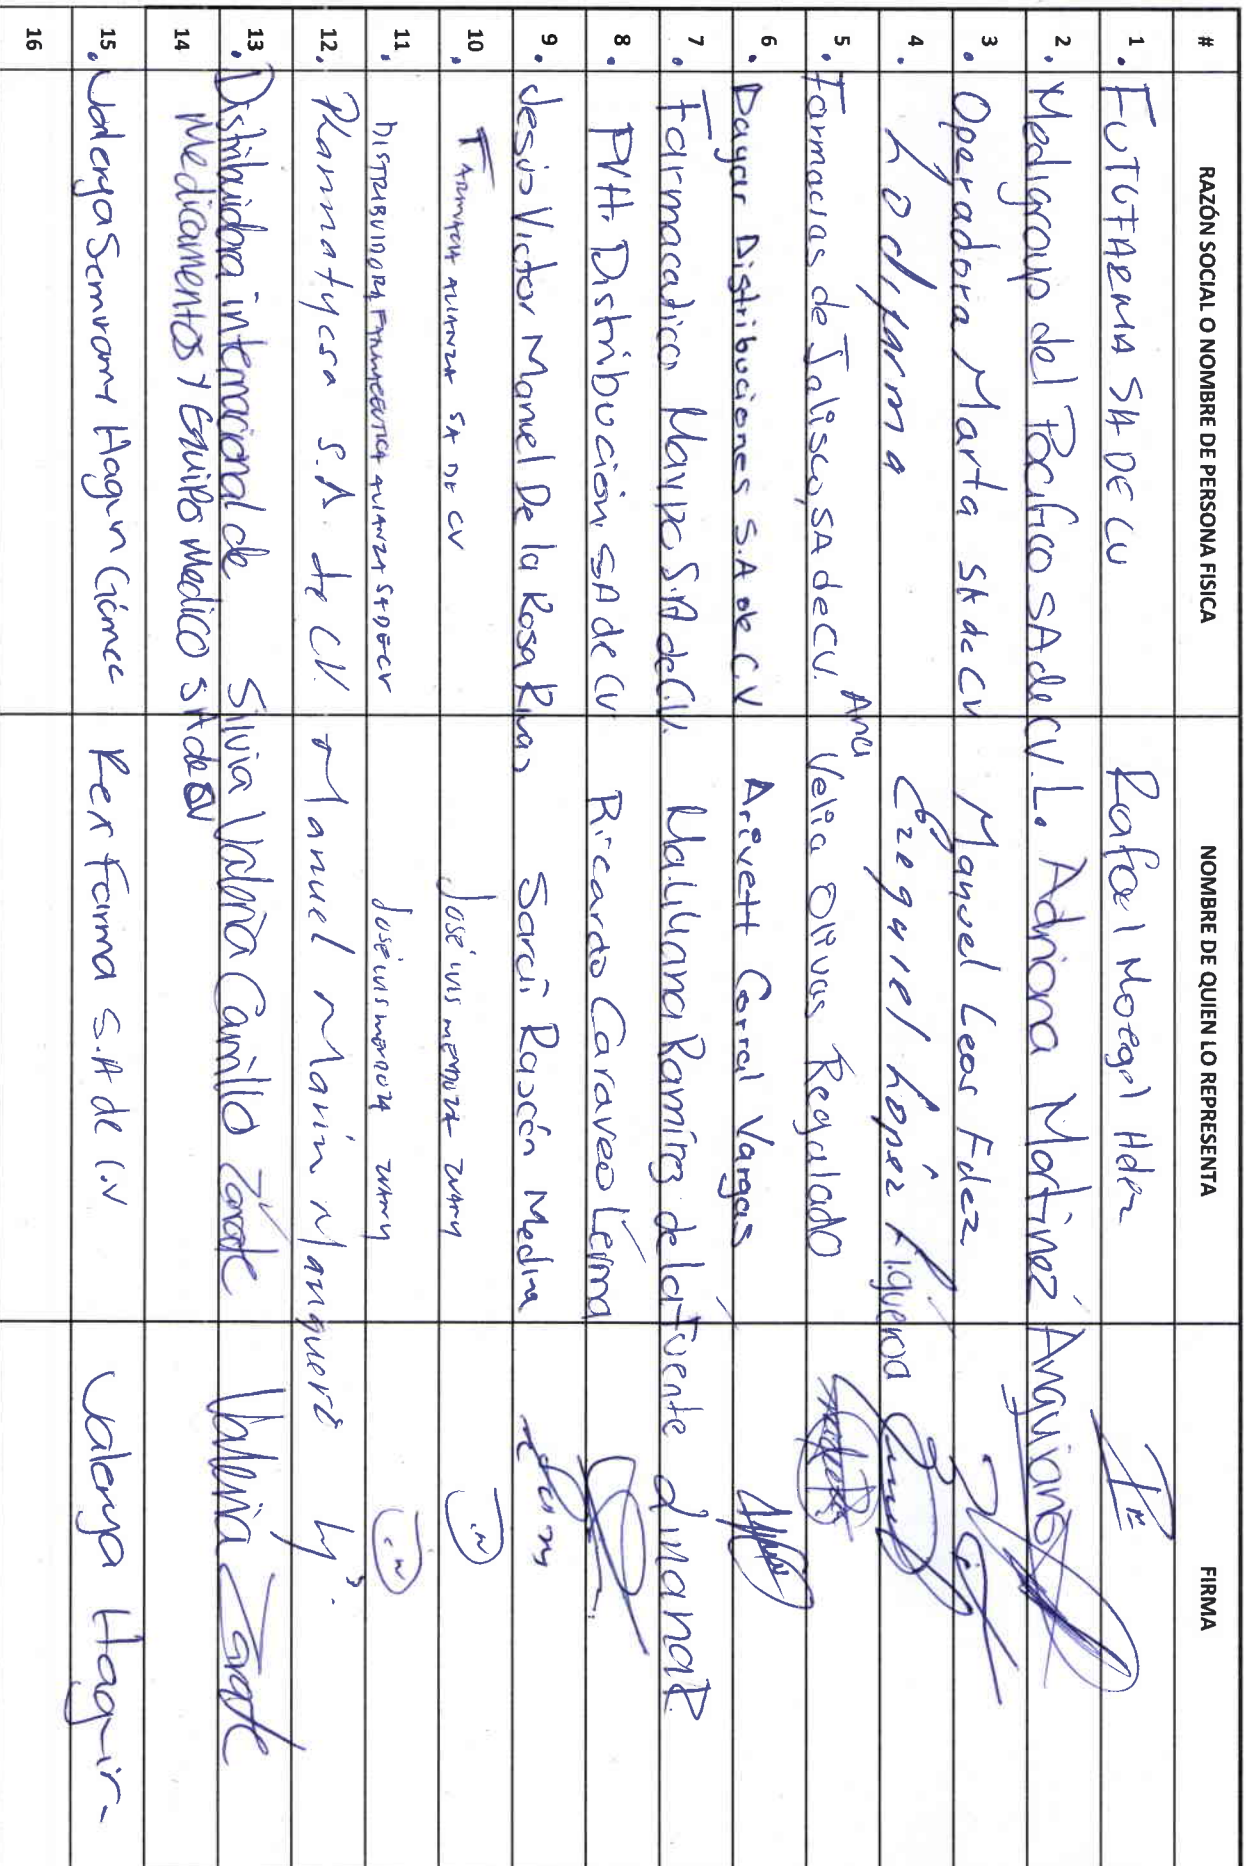 # RAZÓN SOCIAL O NOMBRE DE PERSONA FISICA NOMBRE DE QUIEN LO REPRESENTA FIRMA
1. FUTUFARMA SA DE CV Rafael Moegel Hdez
2. Medigroup del Pacifico SA de CV. L. Adriana Martinez Anguiano
3. Operadora Marta SA de CV Manuel Leos Fdez
4. Lodifarma Ezequiel López Figueroa
5. Farmacias de Jalisco, SA de CV. Ana Velia Olivas Regalado
6. Dagar Distribuciones S.A de C.V Arivett Corral Vargas
7. Farmacatica Maypo S.A de C.V. Ma. Liliana Ramírez de la Fuente
8. PVH. Distribucion. SA de CV Ricardo Caraveo Lerma
9. Jesus Victor Manuel De la Rosa Rivas Saraí Rascón Medina
10. FARMACIA ALIANZA SA DE CV José Luis Mendoza
11. DISTRIBUIDORA FARMACEUTICA ALIANZA SA DE CV José Luis Mendoza
12. Pharmatycsa S.A. de C.V. Manuel Marin
13. Distribuidora internacional de Silvia Valeria Carrillo Zárate Valeria Zarate
14 Medicamentos Y Equipo Medico SA de CV
15. Valerya Hagar Gómez Rex Farma S.A de C.V Valerya
16